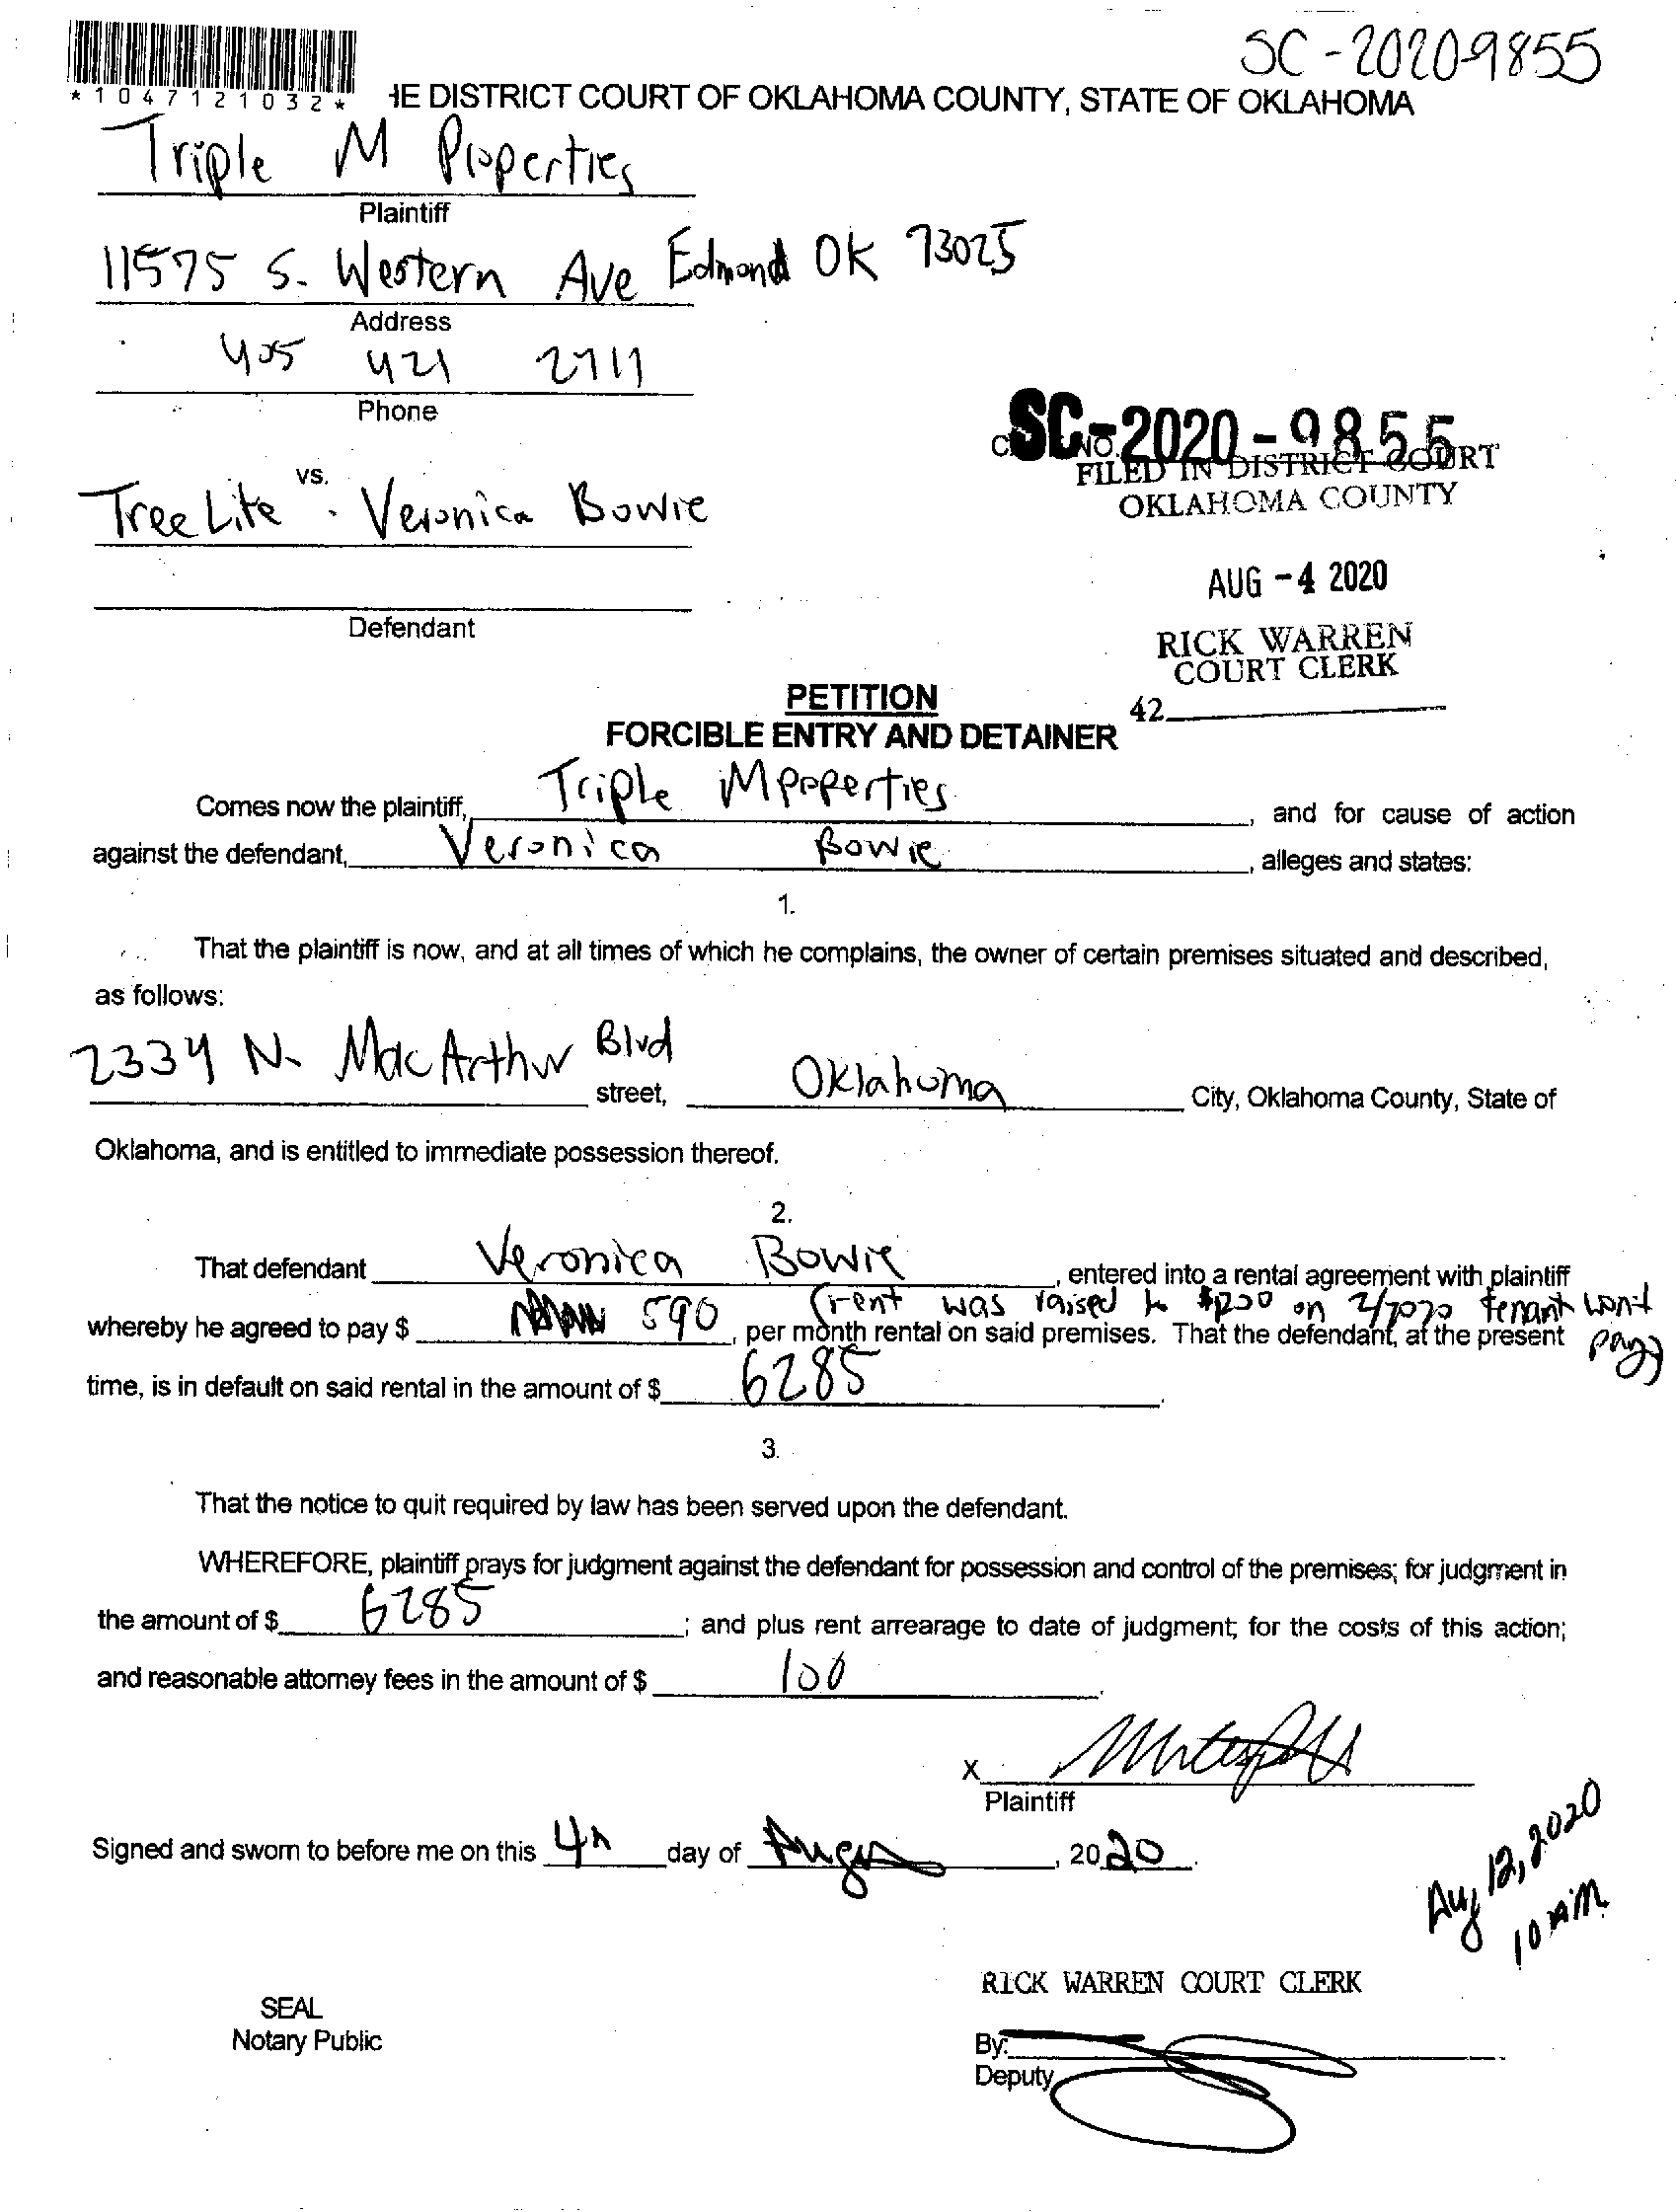 SC-20209855
*1047121032*
HE DISTRICT COURT OF OKLAHOMA COUNTY, STATE OF OKLAHOMA
Triple M Properties
Plaintiff
11575 S. Western Ave Edmond OK 73025
Address
405 421 2711
Phone
SC-2020-9855
NO.
FILED IN DISTRICT COURT
OKLAHOMA COUNTY
vs.
Tree Lite Veronica Bowie
AUG -4 2020
Defendant
RICK WARREN
COURT CLERK
42
PETITION
FORCIBLE ENTRY AND DETAINER
Comes now the plaintiff, Triple M Properties, and for cause of action
against the defendant, Veronica Bowie, alleges and states:
1.
That the plaintiff is now, and at all times of which he complains, the owner of certain premises situated and described,
as follows:
2334 N. MacArthur Blvd street, Oklahoma City, Oklahoma County, State of
Oklahoma, and is entitled to immediate possession thereof.
2.
That defendant Veronica Bowie, entered into a rental agreement with plaintiff
(rent was raised to on tenant wont pay)
whereby he agreed to pay $ 590, per month rental on said premises. That the defendant, at the present
time, is in default on said rental in the amount of $ 6285.
3.
That the notice to quit required by law has been served upon the defendant.
WHEREFORE, plaintiff prays for judgment against the defendant for possession and control of the premises; for judgment in
the amount of $ 6285; and plus rent arrearage to date of judgment; for the costs of this action;
and reasonable attorney fees in the amount of $ 100.
X
Plaintiff
Signed and sworn to before me on this 4th day of August, 2020.
Aug 12, 2020
10 AM
RICK WARREN COURT CLERK
SEAL
Notary Public
By:
Deputy